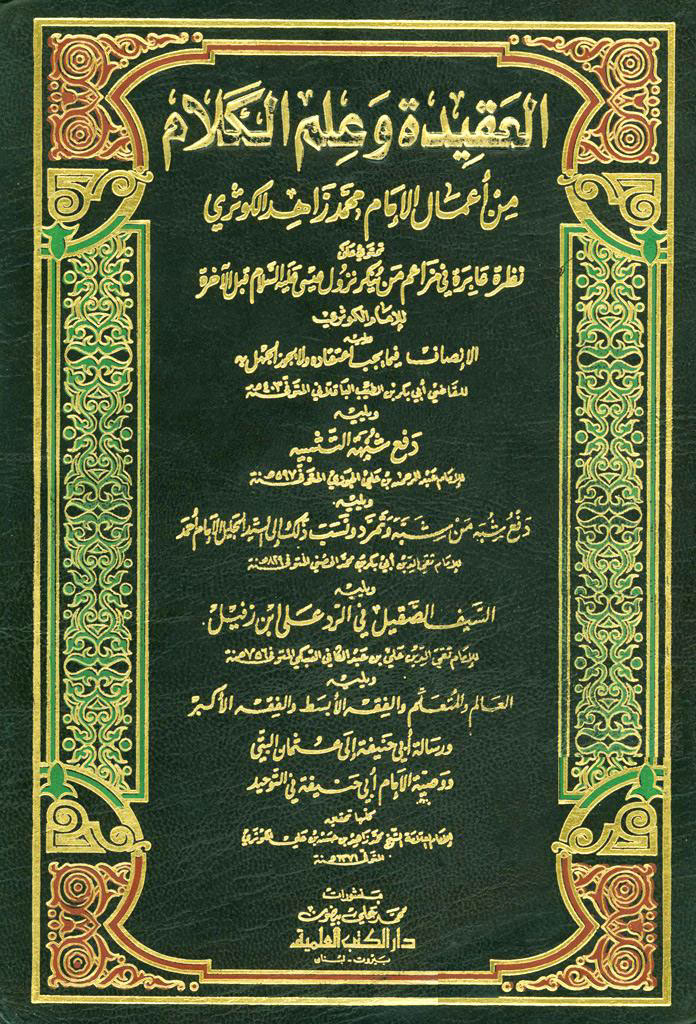 العقيدة وعلم الكلام
من أعمال الإمام محمد زاهد الكوثري
تحتوي على
نظرة عابرة في مزاعم من ينكر نزول عيسى عليه السلام قبل الآخرة
للإمام الكوثري
ويليه
الإنصاف فيما يجب اعتقاده ولا يجوز الجهل به
للقاضي أبي بكر بن الطيب الباقلاني المتوفى ٤٠٣ سنة
ويليه
دفع شبهة التشبيه
للإمام عبد الرحمن بن علي الجوزي المتوفى ٥٩٧ سنة
ويليه
دفع شبه من شبه وتمرد ونسب ذلك إلى السيد الجليل الإمام أحمد
للإمام تقي الدين أبي بكر بن محمد الحصني المتوفى ٨٢٩ سنة
ويليه
السيف الصقيل في الرد على ابن زفيل
للإمام تقي الدين علي بن عبد الكافي السبكي المتوفى ٧٥٦ سنة
ويليه
العالم والمتعلم والفقه الأبسط والفقه الأكبر
ورسالة أبي حنيفة إلى عثمان البتي
ووصية الإمام أبي حنيفة في التوحيد
للإمام العلامة الشيخ محمد زاهد بن حسن بن علي الكوثري
المتوفى ١٣٧١ سنة
منشورات
محمد علي بيضون
دار الكتب العلمية
بيروت - لبنان